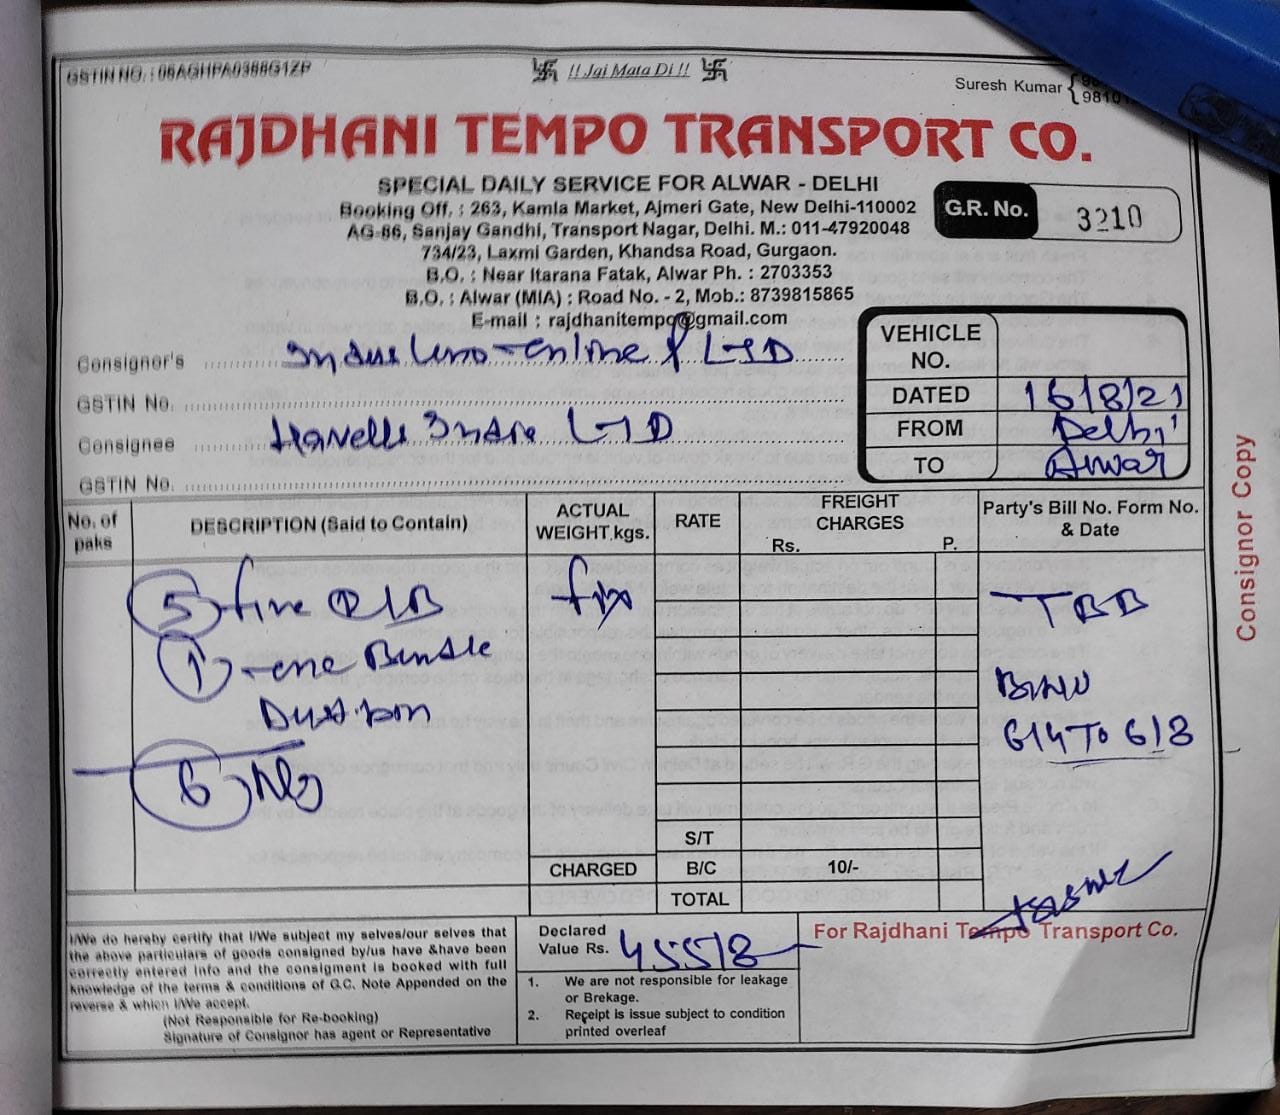 GSTIN NO. : 06AGHPA0388G1ZP
卐 !! Jai Mata Di !! 卐
Suresh Kumar
RAJDHANI TEMPO TRANSPORT CO.
SPECIAL DAILY SERVICE FOR ALWAR - DELHI
Booking Off. : 263, Kamla Market, Ajmeri Gate, New Delhi-110002
AG-86, Sanjay Gandhi, Transport Nagar, Delhi. M.: 011-47920048
734/23, Laxmi Garden, Khandsa Road, Gurgaon.
B.O. : Near Itarana Fatak, Alwar Ph. : 2703353
B.O. : Alwar (MIA) : Road No. - 2, Mob.: 8739815865
E-mail : rajdhanitempo@gmail.com
G.R. No. 3210
Consigner's LTD
GSTIN No.
Consignee Havells India LTD
GSTIN No.
VEHICLE NO.
DATED 16/8/21
FROM Delhi
TO Alwar
No. of paks
DESCRIPTION (Said to Contain)
ACTUAL WEIGHT kgs.
RATE
FREIGHT CHARGES
Rs. P.
Party's Bill No. Form No. & Date
5 five fix TBB
1 one Bundle
Dustbin
614 To 618
6
S/T
CHARGED B/C 10/-
TOTAL
I/We do hereby certify that I/We subject my selves/our selves that
the above particulars of goods consigned by/us have &have been
correctly entered info and the consigment is booked with full
knowledge of the terms & conditions of G.C. Note Appended on the
reverse & which I/We accept.
(Not Responsible for Re-booking)
Signature of Consignor has agent or Representative
Declared Value Rs. 45518
1. We are not responsible for leakage
or Brekage.
2. Receipt is issue subject to condition
printed overleaf
For Rajdhani Tempo Transport Co.
Consignor Copy